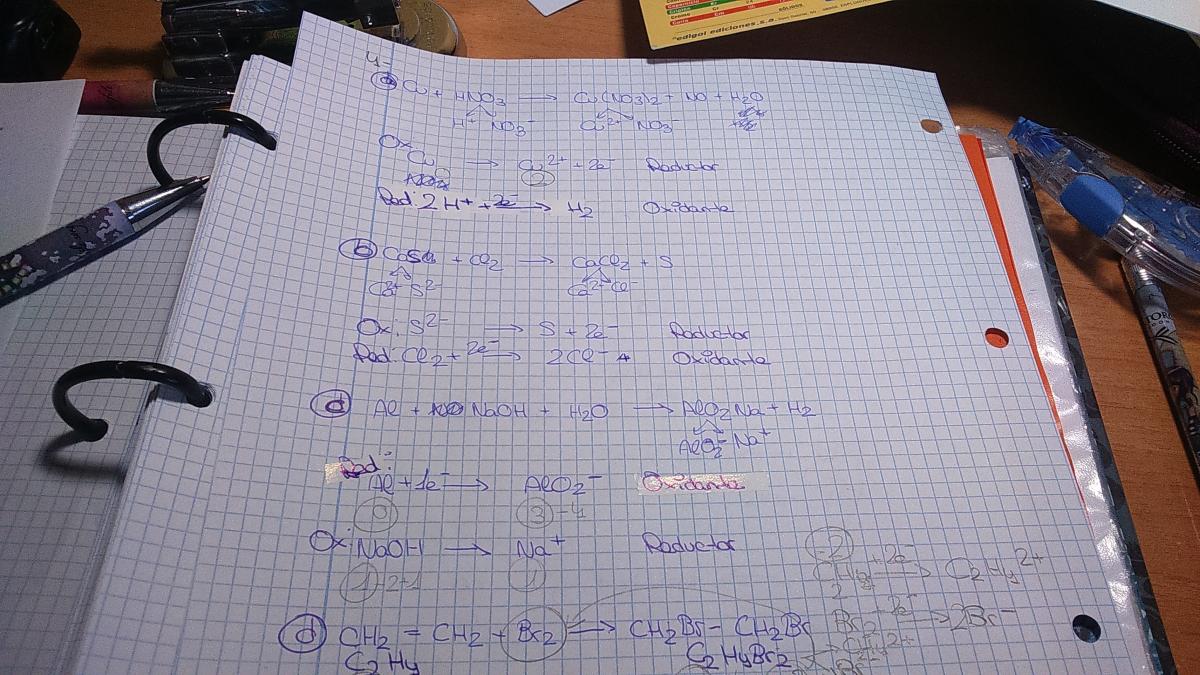 "edigol ediciones, s.a.
4-
a) Cu + HNO3 → Cu(NO3)2 + NO + H2O
H+ NO3- Cu2+ NO3-
Ox
Cu → Cu2+ + 2e- Reductor
Red: 2H+ + 2e- → H2 Oxidante
b) CaS + Cl2 → CaCl2 + S
Ca2+ S2- Ca2+ Cl-
Ox: S2- → S + 2e- Reductor
Red: Cl2 + 2e- → 2Cl- Oxidante
d) Al + NaOH + H2O → AlO2Na + H2
AlO2- Na+
Red:
Al + 1e- → AlO2- Oxidante
0 3 -4
Ox: NaOH → Na+ Reductor
1 -2+1 1
-2
+2e- → C2H4 2+
Br2 +2e- → 2Br-
d) CH2 = CH2 + Br2 → CH2Br - CH2Br
C2H4 C2H4Br2